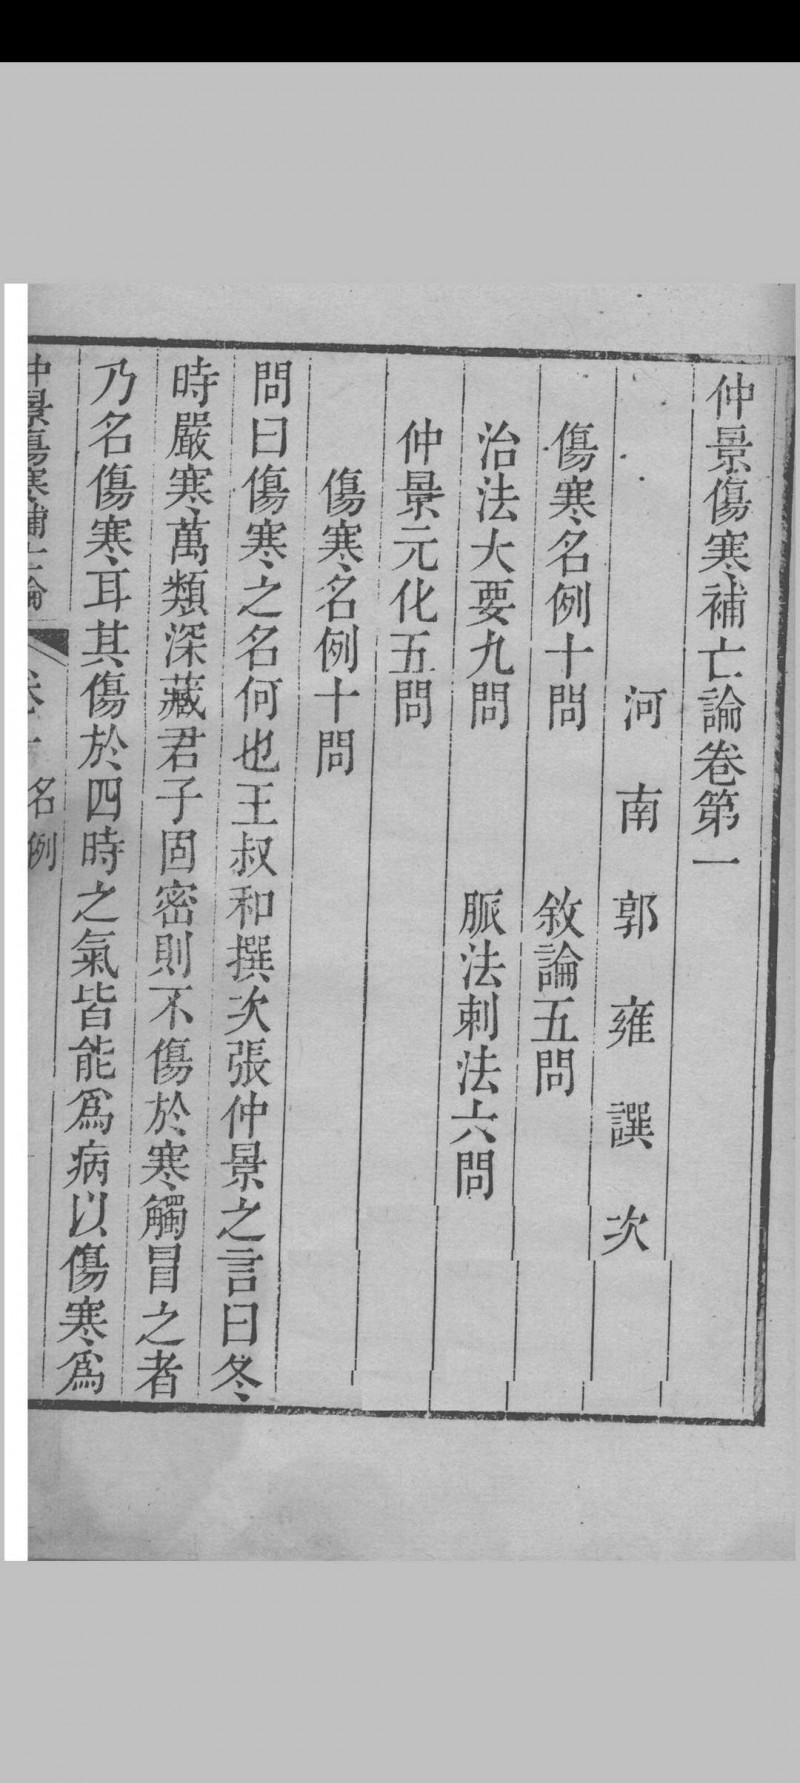 仲景傷寒補亡論卷第一
河南郭雍譔次
傷寒名例十問 敘論五問
治法大要九問 脈法刺法六問
仲景元化五問
傷寒名例十問
問曰傷寒之名何也王叔和撰次張仲景之言曰冬
時嚴寒萬類深藏君子固密則不傷於寒觸冒之者
乃名傷寒耳其傷於四時之氣皆能爲病以傷寒爲
仲景傷寒補亡論 卷一 名例